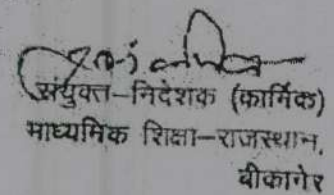 संयुक्त-निदेशक (कार्मिक)
माध्यमिक शिक्षा-राजस्थान,
बीकानेर